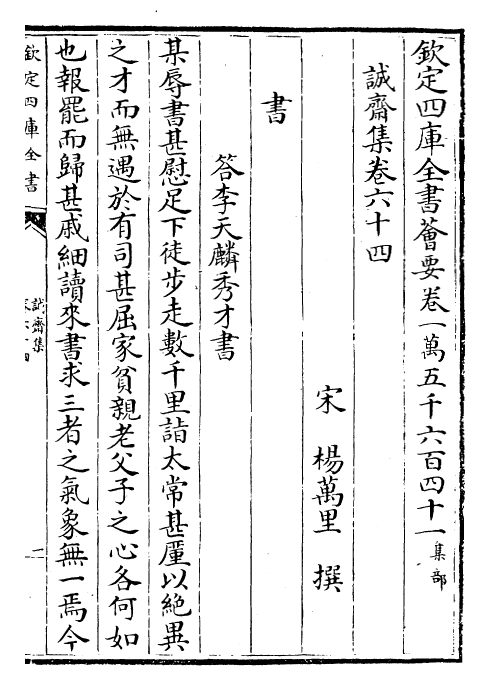 欽定四庫全書薈要卷一萬五千六百四十一集部
誠齋集卷六十四
宋 楊萬里 撰
書
答李天麟秀才書
某辱書甚慰足下徒步走數千里詣太常甚厪以絶異
之才而無遇於有司甚屈家貧親老父子之心各何如
也報罷而歸甚戚細讀來書求三者之氣象無一焉今
欽定四庫全書
誠齋集
卷六十四
一